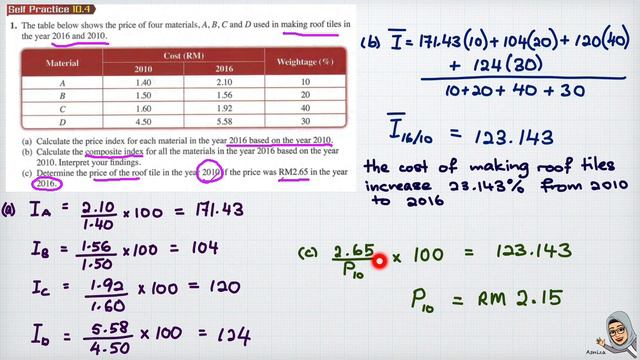 Self Practice 10.4
1. The table below shows the price of four materials, A, B, C and D used in making roof tiles in
the year 2016 and 2010.
Material Cost (RM) Weightage (%)
2010 2016
A 1.40 2.10 10
B 1.50 1.56 20
C 1.60 1.92 40
D 4.50 5.58 30
(a) Calculate the price index for each material in the year 2016 based on the year 2010.
(b) Calculate the composite index for all the materials in the year 2016 based on the year
2010. Interpret your findings.
(c) Determine the price of the roof tile in the year 2010 if the price was RM2.65 in the year
2016.
(a) I_A = 2.10/1.40 × 100 = 171.43
I_B = 1.56/1.50 × 100 = 104
I_C = 1.92/1.60 × 100 = 120
I_D = 5.58/4.50 × 100 = 124
(b) Ī = 171.43(10) + 104(20) + 120(40)
+ 124(30)
10 + 20 + 40 + 30
Ī_16/10 = 123.143
the cost of making roof tiles
increase 23.143% from 2010
to 2016
(c) 2.65/P_10 × 100 = 123.143
P_10 = RM 2.15
Asniza